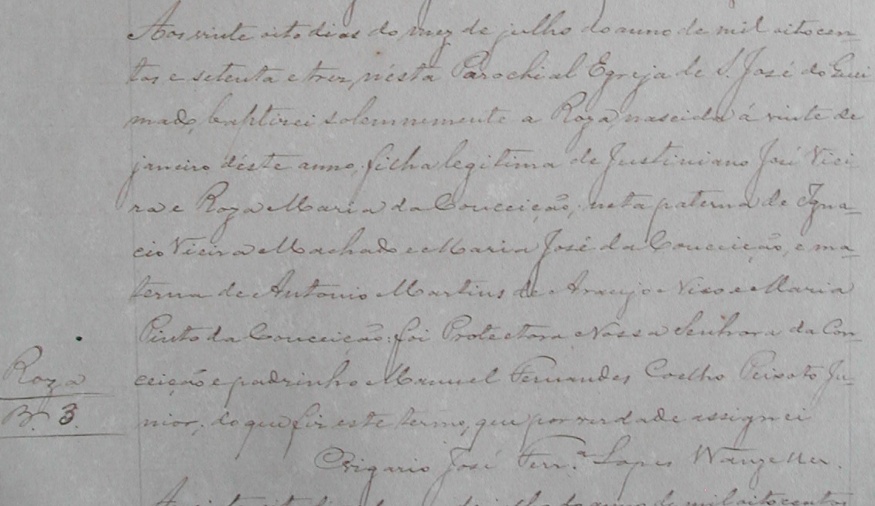 Aos vinte oito dias do mez de julho do anno de mil oitocen-
tos e setenta e trez, nésta Parochial Egreja de S. José do Quei
mado, baptizei solemnemente a Roza, nascida á vinte de
janeiro déste anno, filha legitima de Justiniano José Viei
ra e Roza Maria da Conceição, neta paterna de Igna-
cio Vieira Machado e Maria José da Conceição, e ma-
terna de Antonio Martins de Araujo e Maria
Pinto da Conceição: foi Protectora Nossa Senhora da Con-
ceição e padrinho Manuel Fernandes Coelho Peixoto Ju-
nior, do que fiz este termo, que por verdade assignei
Roza
B. 3.
O Vigario José Ferr.ª Lopes Wanzeller.
dias do mez de julho do anno de mil oitocentos